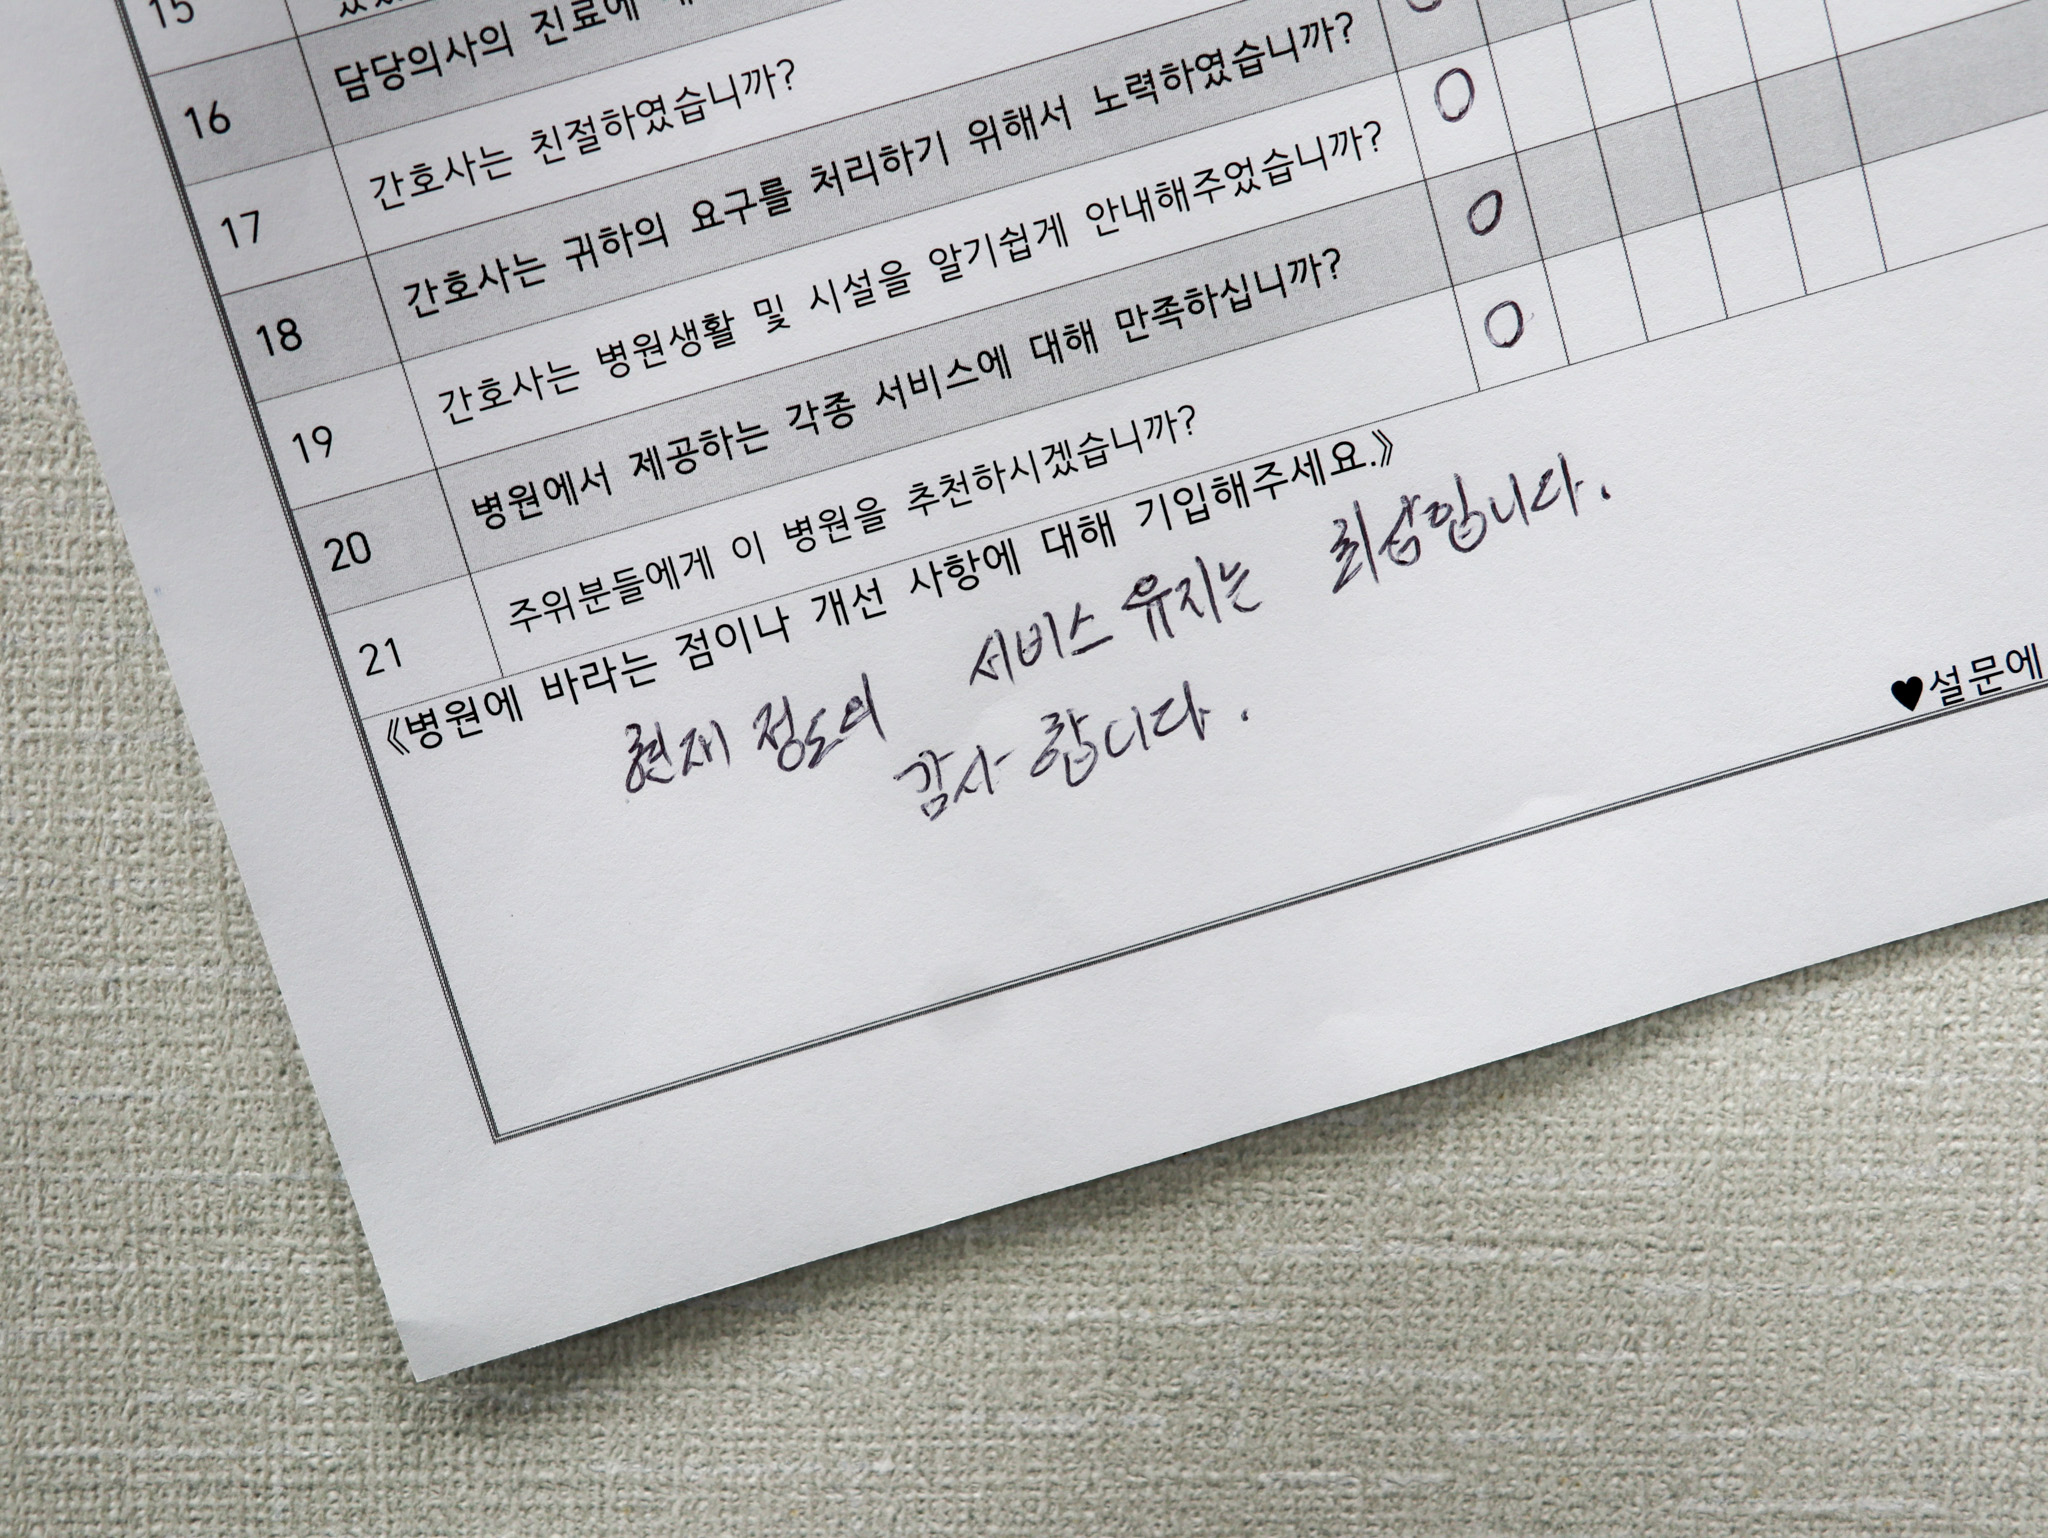 15
16 담당의사의 진료에
17 간호사는 친절하였습니까?
18 간호사는 귀하의 요구를 처리하기 위해서 노력하였습니까?
19 간호사는 병원생활 및 시설을 알기쉽게 안내해주었습니까?
20 병원에서 제공하는 각종 서비스에 대해 만족하십니까?
21 주위분들에게 이 병원을 추천하시겠습니까?
《병원에 바라는 점이나 개선 사항에 대해 기입해주세요.》
현재 정도의 서비스 유지는 최상입니다.
감사합니다.
♥설문에